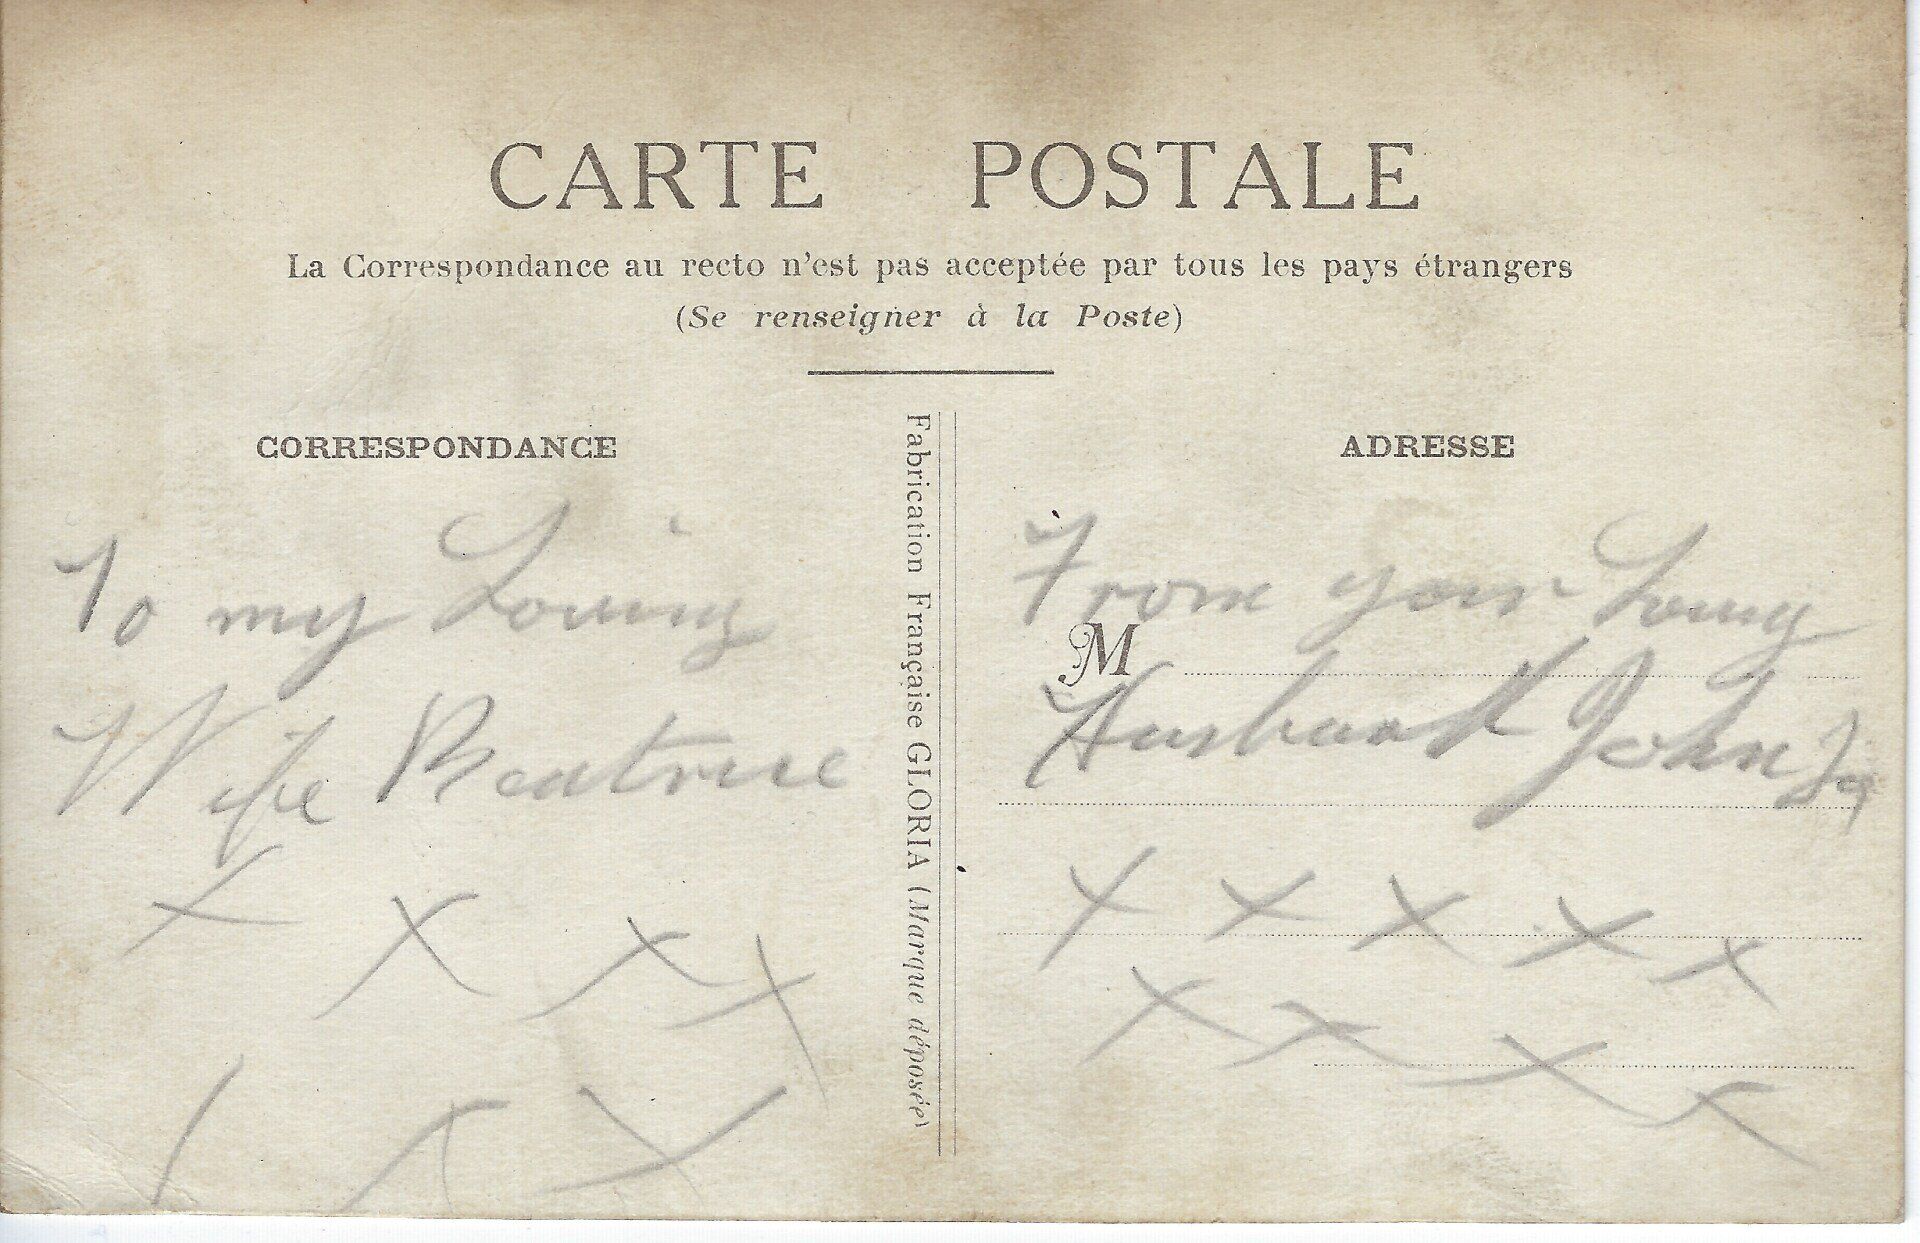 CARTE POSTALE
La Correspondance au recto n'est pas acceptée par tous les pays étrangers
(Se renseigner à la Poste)
CORRESPONDANCE
To my Loving
Wife Beatrice
X X X X
X X X
Fabrication Française GLORIA (Marque déposée)
ADRESSE
From your Loving
M
Husband John
X X X X X
X X X X